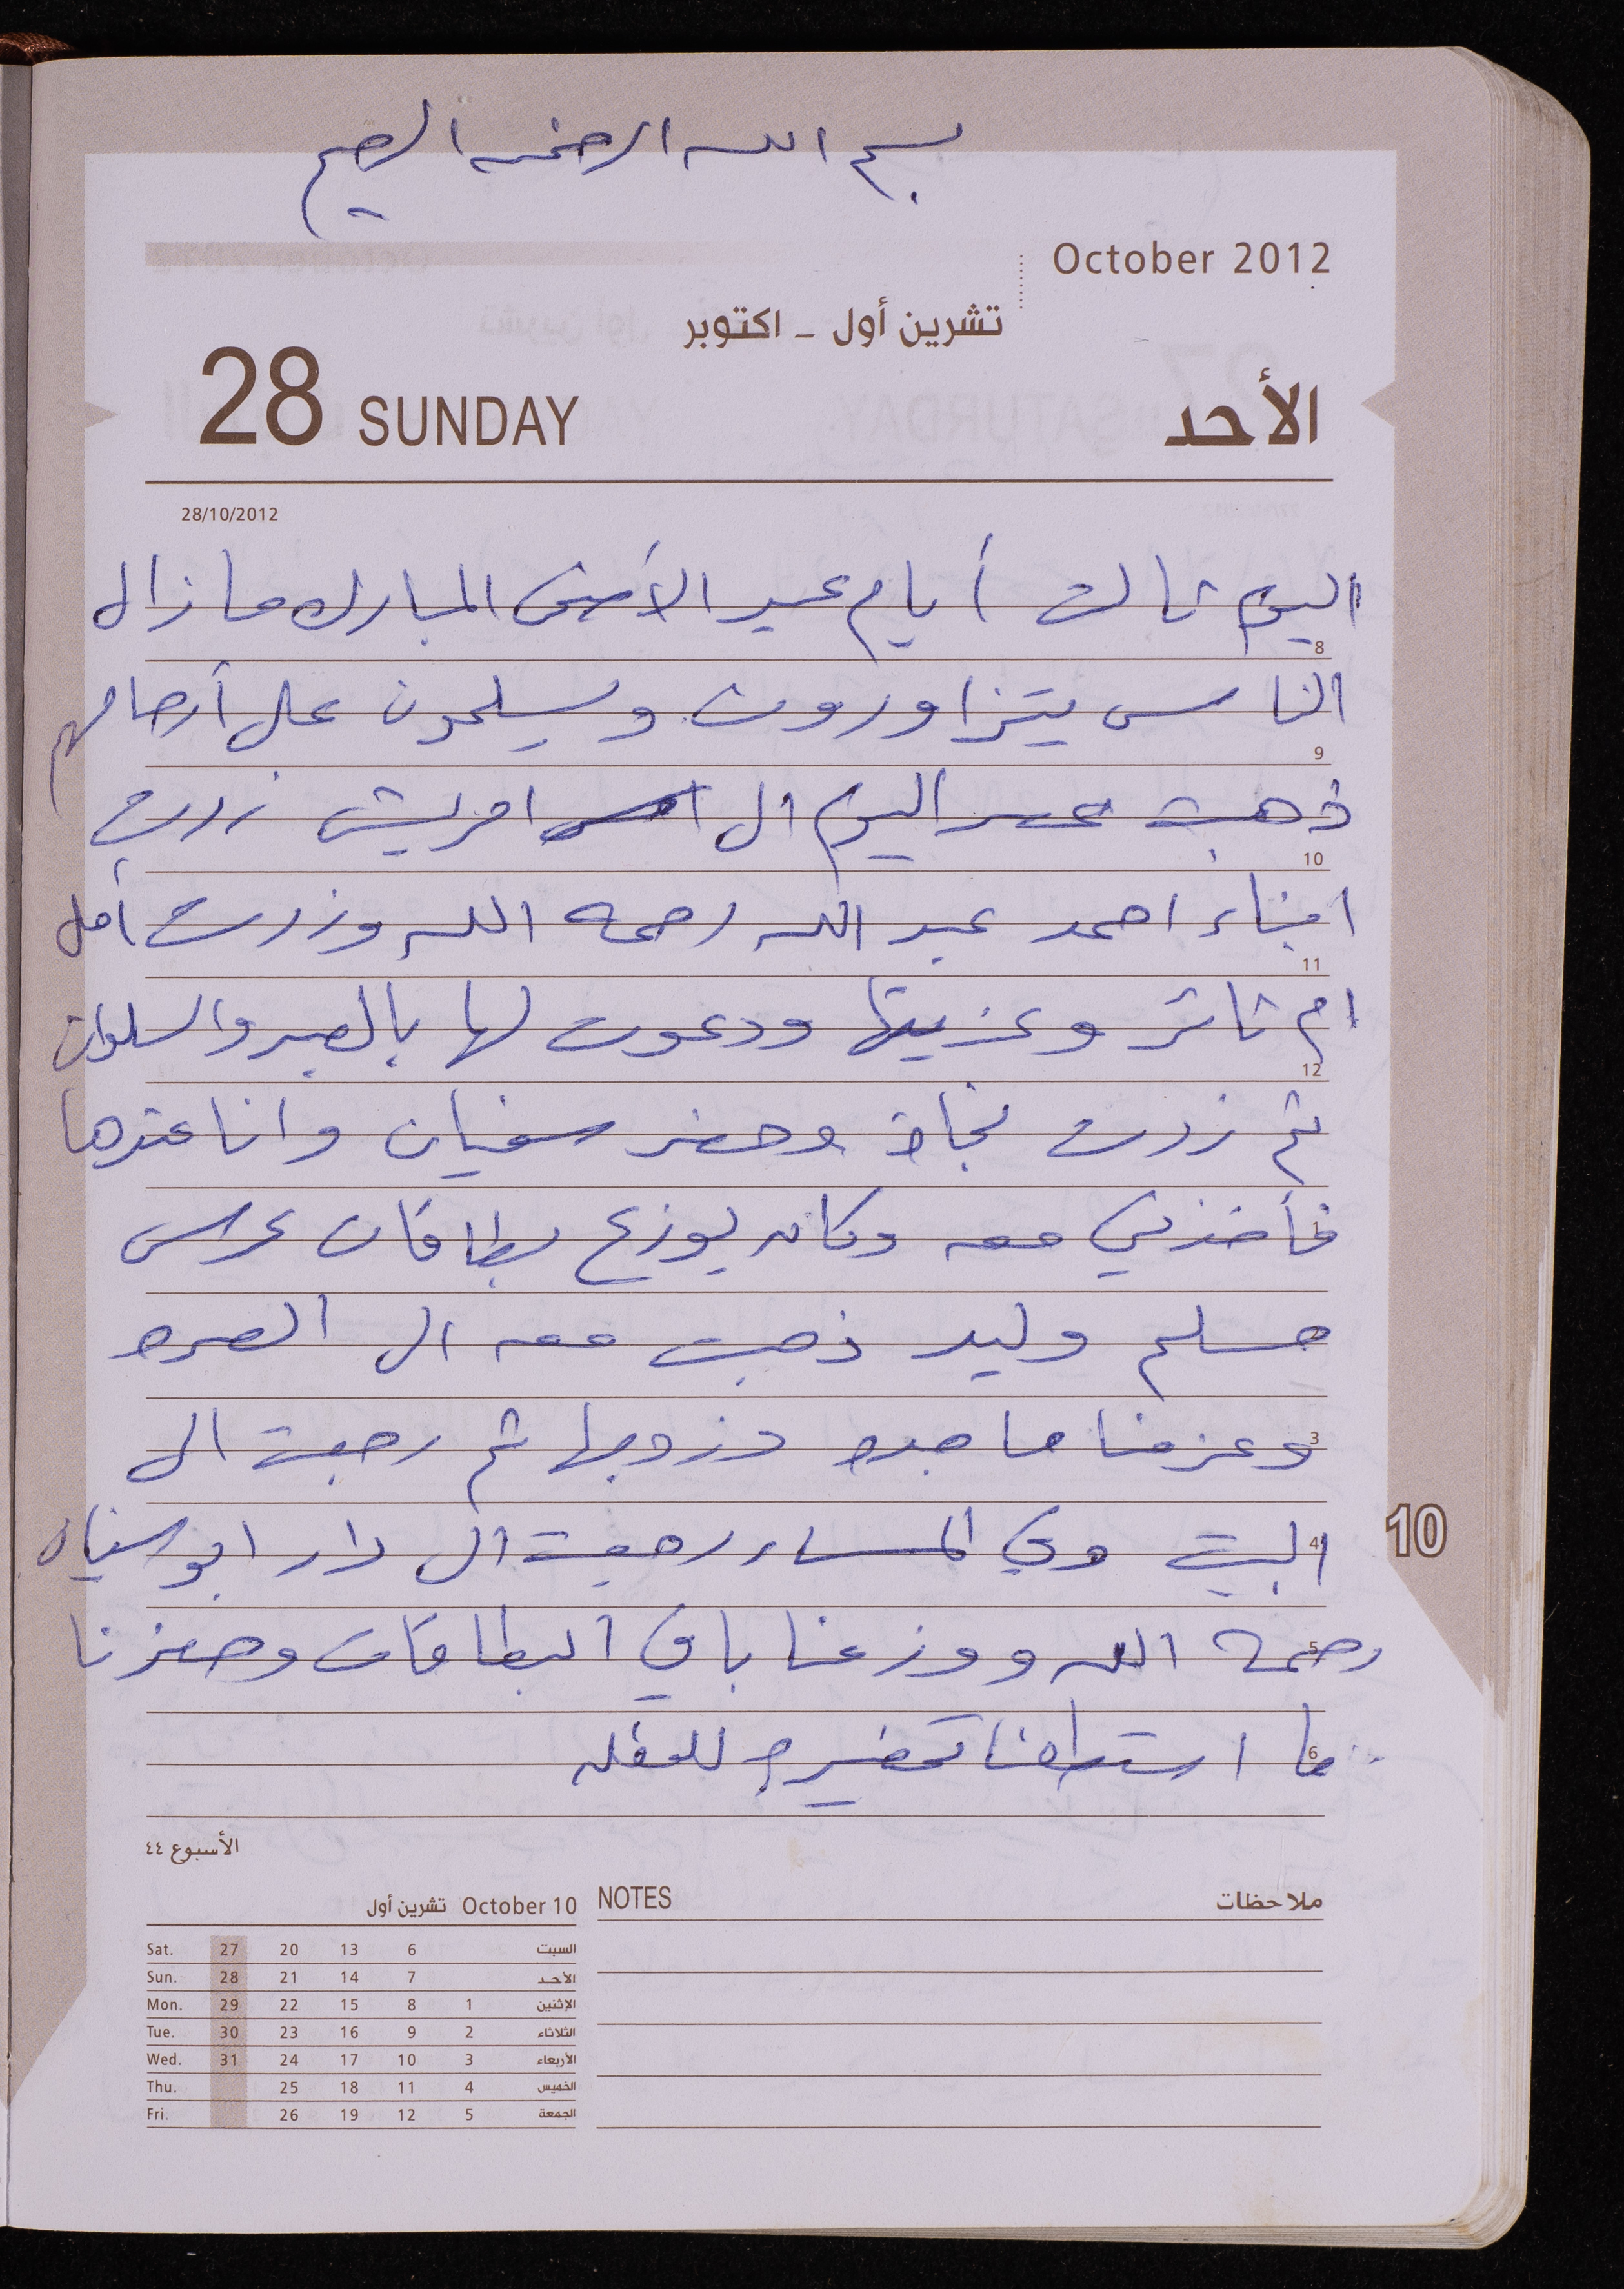 بسم الله الرحمن الرحيم
October 2012
تشرين أول - اكتوبر
28 SUNDAY الأحد
28/10/2012
اليوم ثالث أيام عيد الأضحى المبارك ما زال
8
الناس يتزاورون ويسلمون على أرحامهم
9
ذهبت عصر اليوم الى امريش زرت
10
ابناء احمد عبد الله رحمه الله وزرت أمل
11
ام ثائر وعزيتها ودعوت لها بالصبر والسلوان
12
ثم زرت نجاة وحضر سفيان وانا عندها
1
فأخذني معه وكان يوزع بطاقات عرس
مسلم وليد ذهبت معه الى
3
وعزمنا ماجده وزوجها ثم رجعت الى
4
البيت وفي المساء رجعت الى دار ابو سفيان
10
5
رحمه الله ووزعنا باقي البطاقات وحضرنا
6
ما استطعنا تحضيره للحفله
الأسبوع ٤٤
October 10 تشرين أول
Sat. 27 20 13 6 السبت
Sun. 28 21 14 7 الأحد
Mon. 29 22 15 8 1 الإثنين
Tue. 30 23 16 9 2 الثلاثاء
Wed. 31 24 17 10 3 الأربعاء
Thu. 25 18 11 4 الخميس
Fri. 26 19 12 5 الجمعة
NOTES ملاحظات